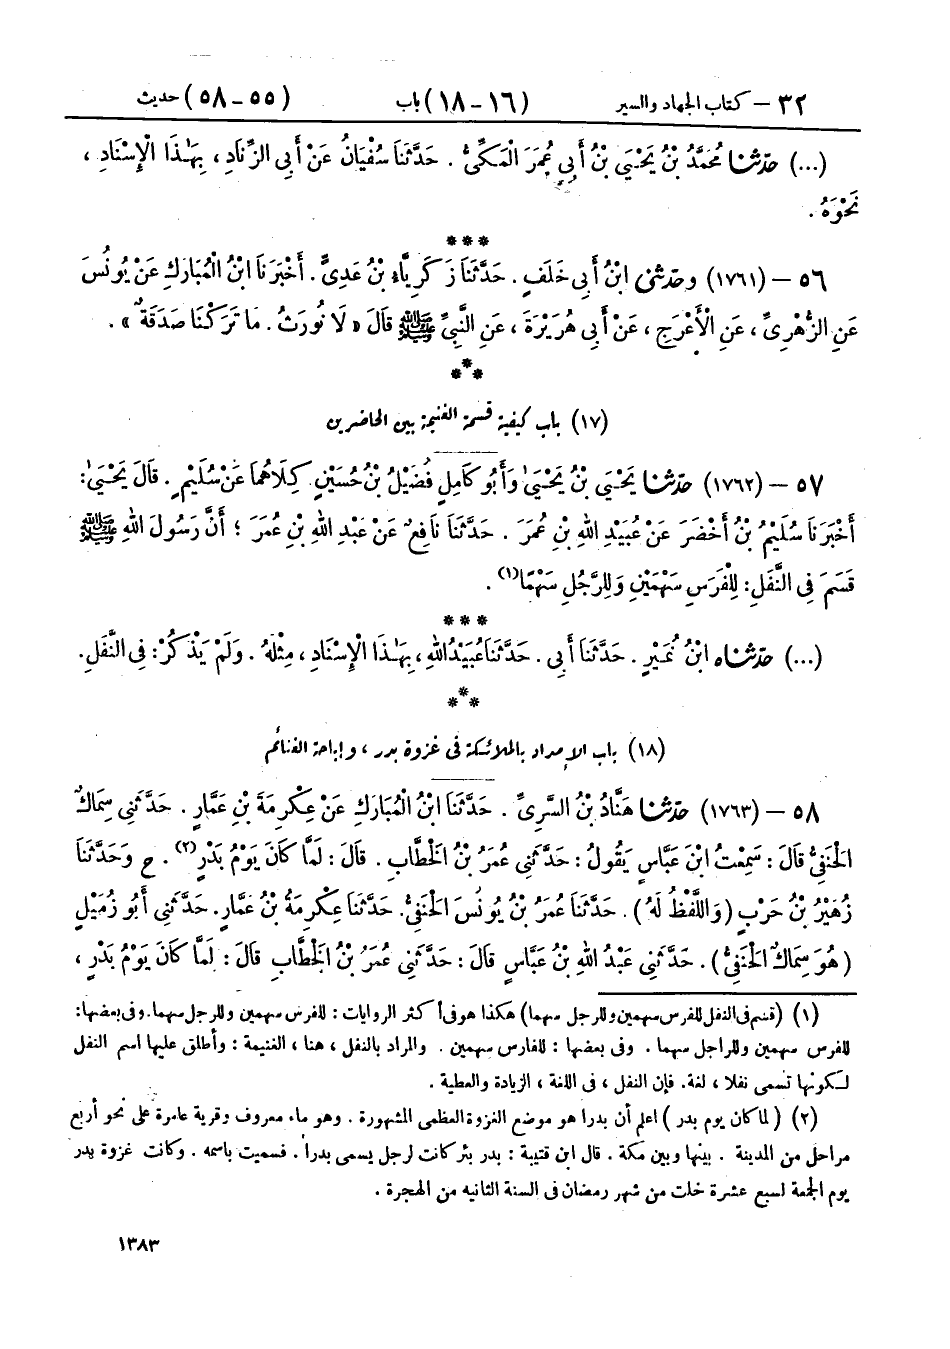 ٣٢ – كتاب الجهاد والسير (١٦ – ١٨) باب (٥٥ – ٥٨) حديث
(...) حدّثنا مُحَمَّدُ بْنُ يَحْيَىٰ بْنُ أَبِي عُمَرَ الْمَكِّيُّ . حَدَّثَنَا سُفْيَانُ عَنْ أَبِي الزِّنَادِ ، بِهَـٰذَا الْإِسْنَادِ ،
نَحْوَهُ .
***
٥٦ – (١٧٦١) وحدّثني ابْنُ أَبِي خَلَفٍ . حَدَّثَنَا زَكَرِيَّاءُ بْنُ عَدِيٍّ . أَخْبَرَنَا ابْنُ الْمُبَارَكِ عَنْ يُونُسَ
عَنِ الزُّهْرِيِّ ، عَنِ الْأَعْرَجِ ، عَنْ أَبِي هُرَيْرَةَ ، عَنِ النَّبِيِّ ﷺ قَالَ « لَا نُورَثُ . مَا تَرَكْنَا صَدَقَةٌ » .
***
(١٧) باب كيفية قسمة الغنيمة بين الحاضرين
٥٧ – (١٧٦٢) حدّثنا يَحْيَىٰ بْنُ يَحْيَىٰ وَأَبُو كَامِلٍ فُضَيْلُ بْنُ حُسَيْنٍ. كِلَاهُمَا عَنْ سُلَيْمٍ. قَالَ يَحْيَىٰ:
أَخْبَرَنَا سُلَيْمُ بْنُ أَخْضَرَ عَنْ عُبَيْدِ اللهِ بْنِ عُمَرَ . حَدَّثَنَا نَافِعٌ عَنْ عَبْدِ اللهِ بْنِ عُمَرَ ؛ أَنَّ رَسُولَ اللهِ ﷺ
قَسَمَ فِي النَّفَلِ: لِلْفَرَسِ سَهْمَيْنِ وَلِلرَّجُلِ سَهْمًا(١) .
***
(...) حدّثناه ابْنُ نُمَيْرٍ . حَدَّثَنَا أَبِي . حَدَّثَنَا عُبَيْدُ اللهِ ، بِهَـٰذَا الْإِسْنَادِ ، مِثْلَهُ . وَلَمْ يَذْكُرْ: فِي النَّفَلِ.
***
(١٨) باب الإمداد بالملائكة في غزوة بدر ، وإباحة الغنائم
٥٨ – (١٧٦٣) حدّثنا هَنَّادُ بْنُ السَّرِيِّ . حَدَّثَنَا ابْنُ الْمُبَارَكِ عَنْ عِكْرِمَةَ بْنِ عَمَّارٍ . حَدَّثَنِي سِمَاكٌ
الْحَنَفِيُّ قَالَ : سَمِعْتُ ابْنَ عَبَّاسٍ يَقُولُ : حَدَّثَنِي عُمَرُ بْنُ الْخَطَّابِ . قَالَ : لَمَّا كَانَ يَوْمُ بَدْرٍ(٢) . ح وَحَدَّثَنَا
زُهَيْرُ بْنُ حَرْبٍ (وَاللَّفْظُ لَهُ) . حَدَّثَنَا عُمَرُ بْنُ يُونُسَ الْحَنَفِيُّ. حَدَّثَنَا عِكْرِمَةُ بْنُ عَمَّارٍ. حَدَّثَنِي أَبُو زُمَيْلٍ
(هُوَ سِمَاكٌ الْحَنَفِيُّ) . حَدَّثَنِي عَبْدُ اللهِ بْنُ عَبَّاسٍ قَالَ : حَدَّثَنِي عُمَرُ بْنُ الْخَطَّابِ قَالَ : لَمَّا كَانَ يَوْمُ بَدْرٍ ،
(١) (قسم في النفل للفرس سهمين وللرجل سهما) هكذا هو في أكثر الروايات : للفرس سهمين وللرجل سهما. وفي بعضها:
للفرس سهمين وللراجل سهما . وفى بعضها : للفارس سهمين . والمراد بالنفل ، هنا ، الغنيمة : وأطلق عليها اسم النفل
لكونها تسمى نفلا ، لغة. فإن النفل ، فى اللغة ، الزيادة والعطية .
(٢) (لما كان يوم بدر) اعلم أن بدرا هو موضع الغزوة العظمى المشهورة . وهو ماء معروف وقرية عامرة على نحو أربع
مراحل من المدينة . بينها وبين مكة . قال ابن قتيبة : بدر بئر كانت لرجل يسمى بدراً . فسميت باسمه . وكانت غزوة بدر
يوم الجمعة لسبع عشرة خلت من شهر رمضان فى السنة الثانيه من الهجرة .
١٣٨٣